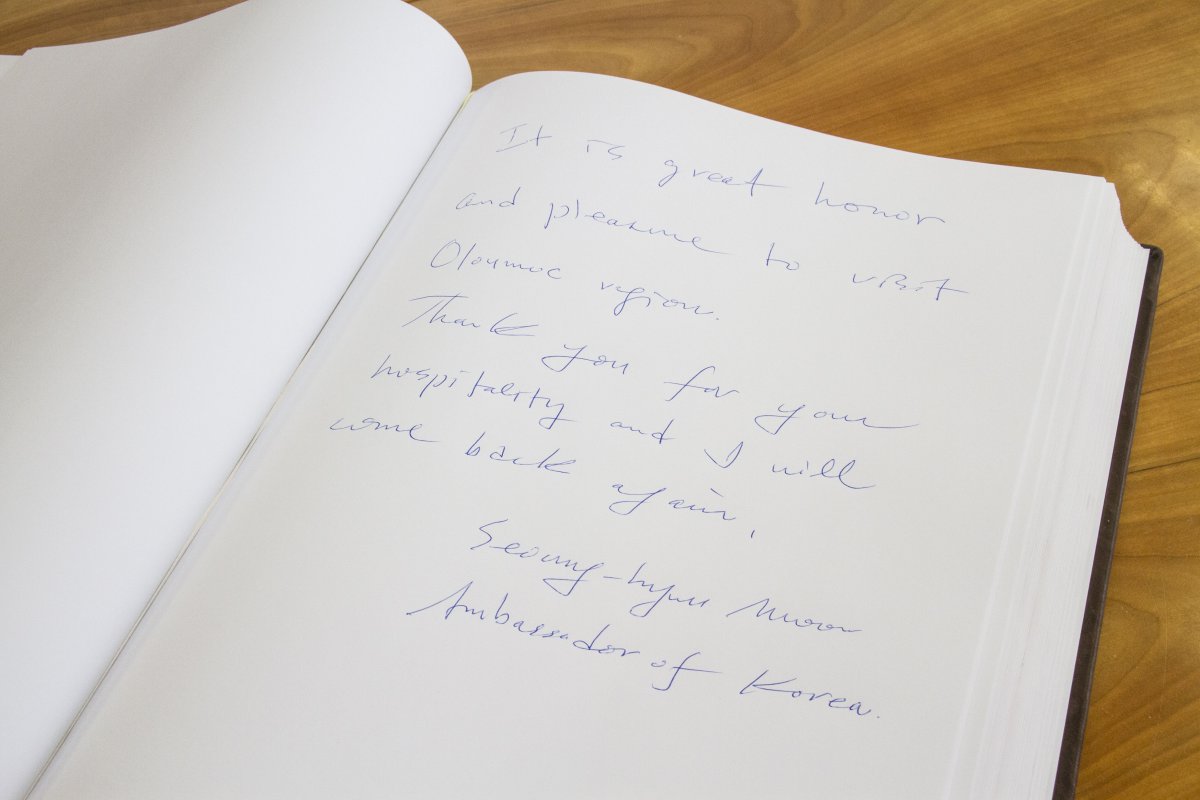 It is great honor
and pleasure to visit
Oloumoc region.
Thank you for your
hospitality and I will
come back again.
Seoung-hyun Moon
Ambassador of Korea.